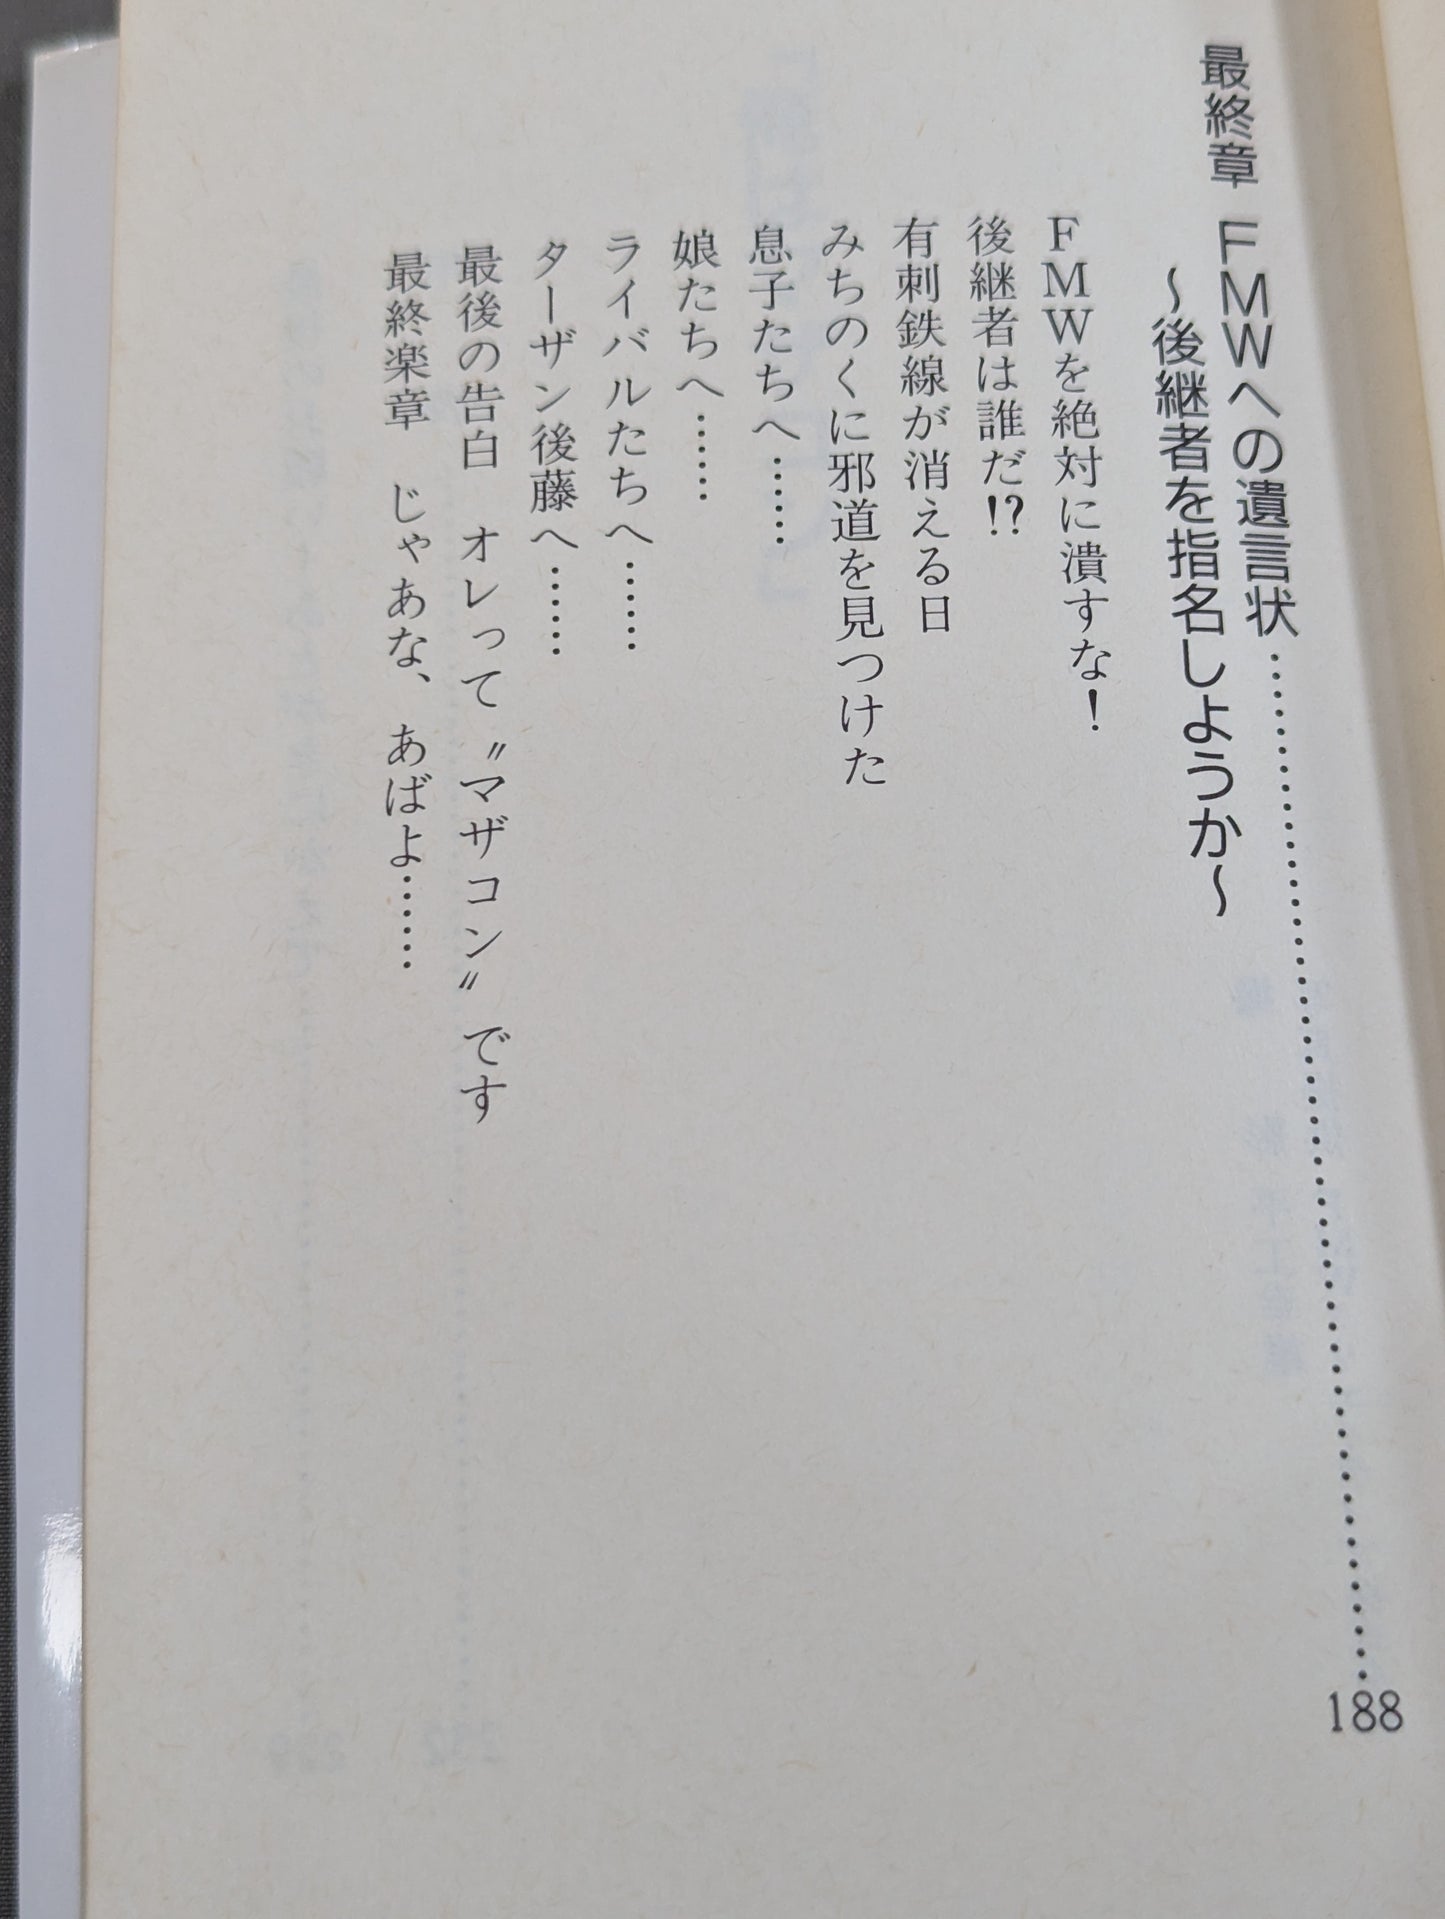 最終章　FMWへの遺言状……………………………………188
～後継者を指名しようか～
FMWを絶対に潰すな！
後継者は誰だ!?
有刺鉄線が消える日
みちのくに邪道を見つけた
息子たちへ……
娘たちへ……
ライバルたちへ……
ターザン後藤へ……
最後の告白　オレって〝マザコン〟です
最終楽章　じゃあな、あばよ……